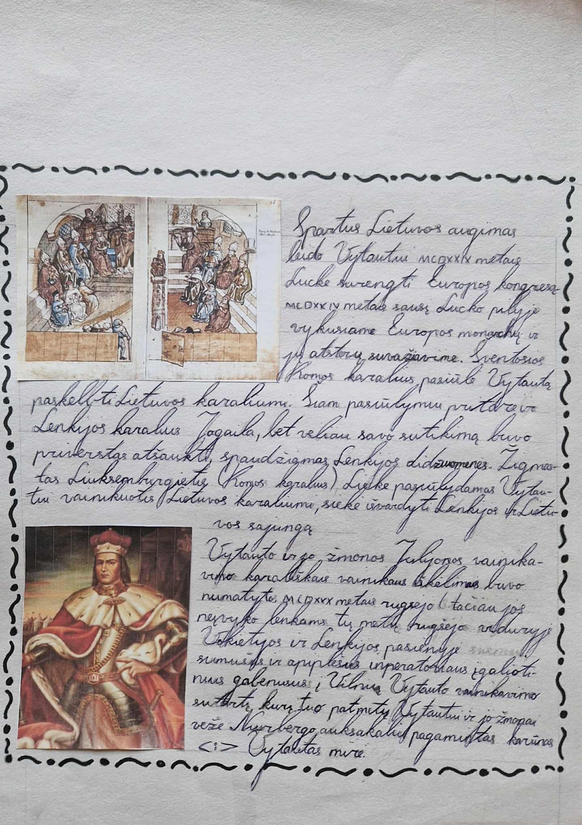 Spartus Lietuvos augimas
leido Vytautui MCDXXIX metais
Lucke surengti Europos kongresą
MCDXXIX metais sausį Lucko pilyje
vykusiame Europos monarchų ir
jų atstovų suvažiavime. Šventosios
Romos karalius pasiūlė Vytautą
paskelbti Lietuvos karaliumi. Šiam pasiūlymui pritarė ir
Lenkijos karalius Jogaila, bet vėliau savo sutikimą buvo
priverstas atšaukti, spaudžiamas Lenkijos didžiuomenės. Žigman-
tas Liuksemburgietis (Romos karalius) Lucke pasiūlydamas Vytau-
tui vainikuotis Lietuvos karaliumi, siekė išvardyti Lenkijos ir Lietu-
vos sąjungą
Vytauto ir jo žmonos Julijonos vainika-
vimo karališkais vainikais iškilmės buvo
numatytos MCDXXX metais rugsėjo tačiau jos
neįvyko lenkams tų metų rugsėjo viduryje
Vokietijos ir Lenkijos pasienyje
sumušus ir apiplėšus imperatoriaus įgalioti-
nius gabenusius į Vilnių Vytauto vainikavimo
sutartį, kuri tuo patmitų Vytautui ir jo žmonai
vežė Niurbergo auksakalių pagamintas karūnas
<:> Vytautas mirė.